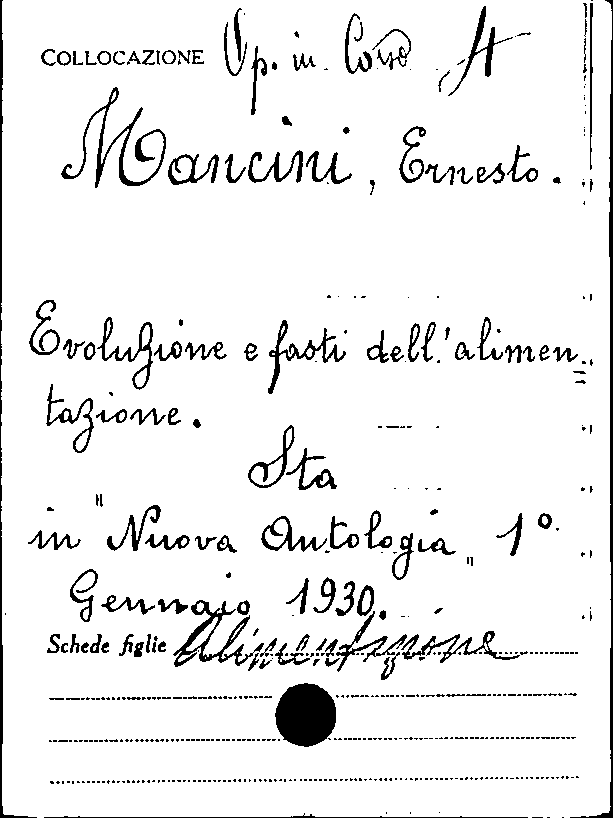 COLLOCAZIONE Op. in Corso A
Mancini, Ernesto.
Evoluzione e fasti dell'alimen=
tazione.
Sta
in "Nuova Antologia„ 1º
Gennaio 1930.
Schede figlie Alimentazione